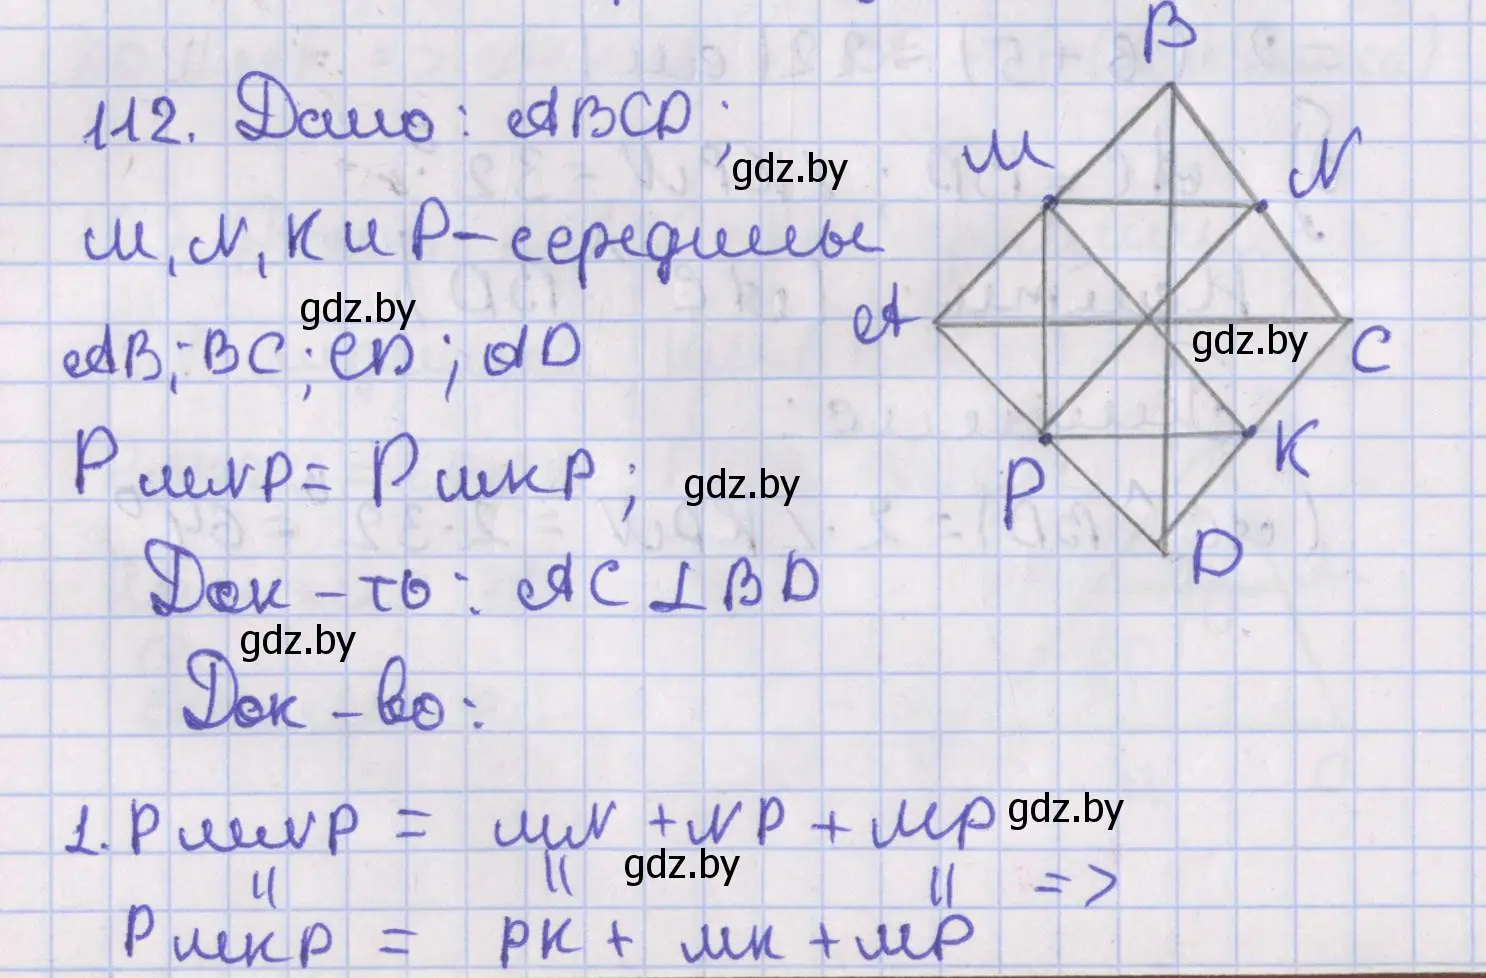 112. Дано: ABCD;
gdz.by
M, N, K и P - середины
gdz.by
AB; BC; CD; AD
P MNP = P MKP;
gdz.by
Док-ть: AC ⊥ BD
gdz.by
Док-во:
1. P MNP = MN + NP + MP
gdz.by
gdz.by
|| || || =>
P MKP = PK + MK + MP
B
M
N
A
gdz.by
C
P
K
D